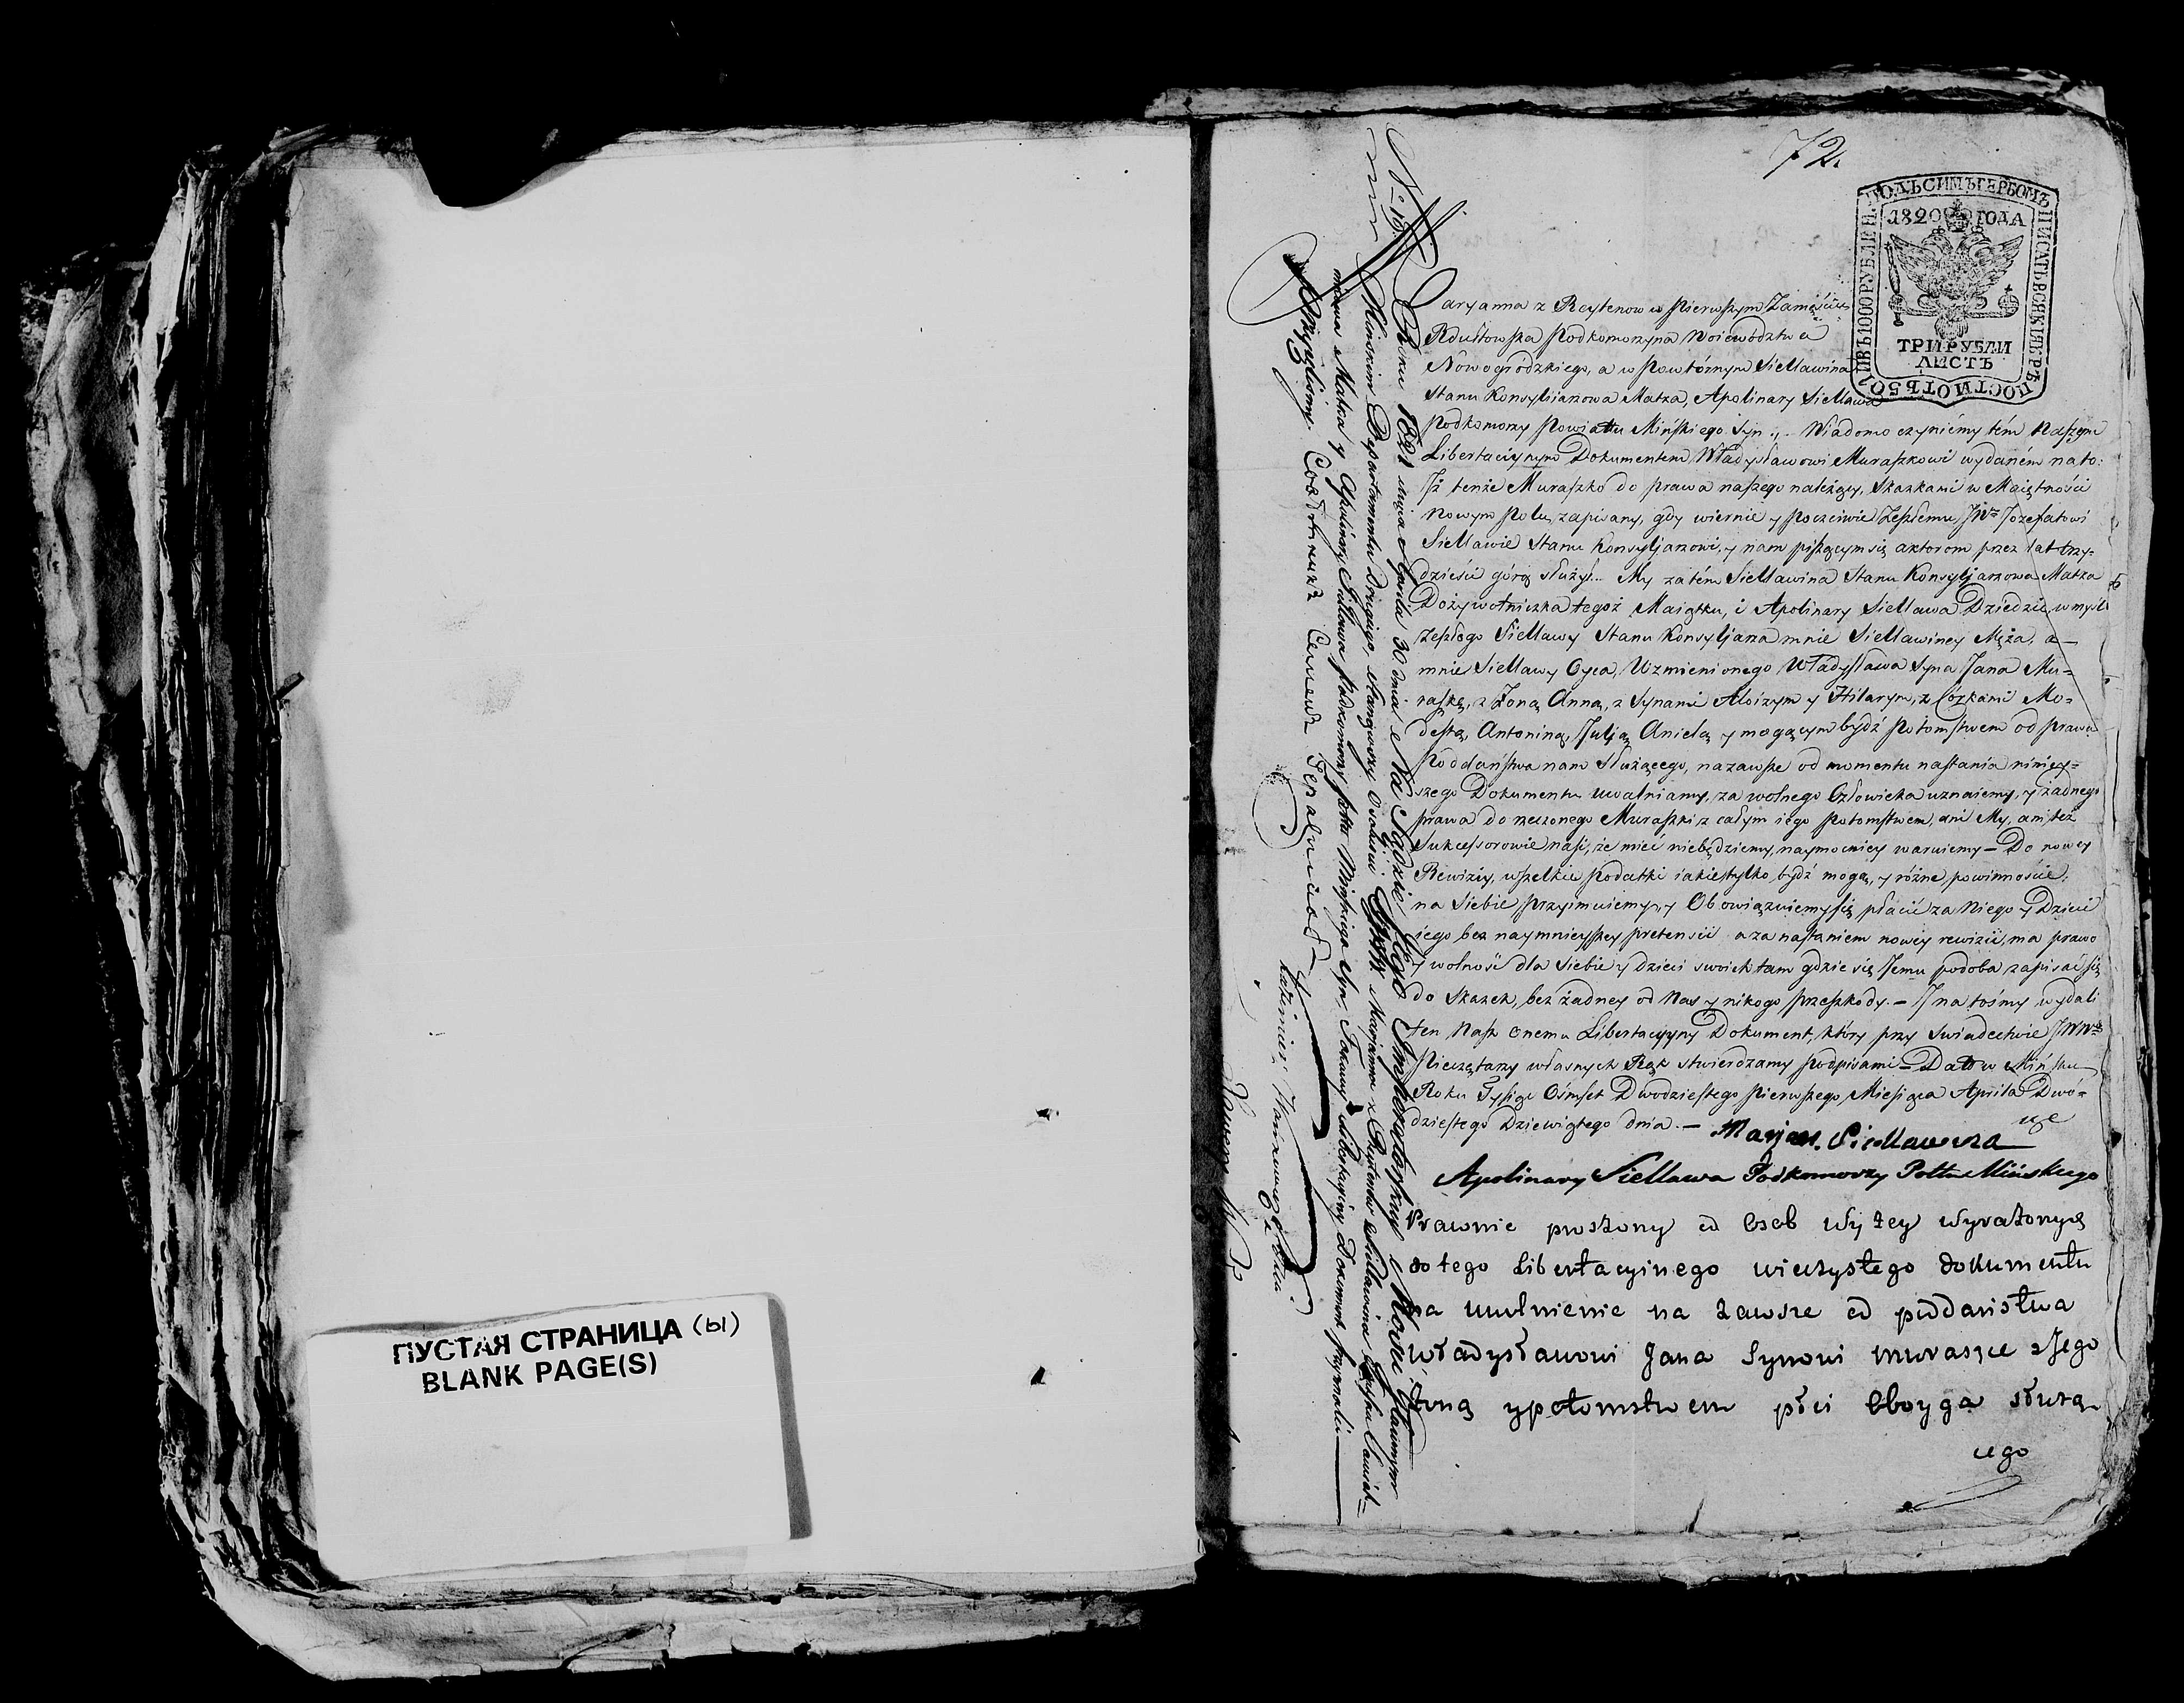 ПУСТАЯ СТРАНИЦА (ы)
BLANK PAGE(S)
72.
ПОДЪ СИМЪ ГЕРБОМЪ ПИСАТЬ ВСЯКІЯ КРѢПОСТИ ОТЪ 50 ДО 1000 РУБЛЕЙ
1820 ГОДА
ТРИ РУБЛИ
ЛИСТЪ
Maryanna z Reytenow w pierwszym Zamęściu
Rdułtowska Podkomorzyna Woiewództwa
Nowogródzkiego, a w powtórnym Siellawina
Stanu Konsyliarzowa Matka, Apolinary Siellawa
Podkomorzy Powiattu Mińskiego Syn.,. Wiadomo czyniemy tém Naszym
Libertacijnym Dokumentem Władysławowi Muraszkowi wydaném na to:
Jż tenże Muraszko do prawa naszego należący, Skazkami w Maiętności
Nowym Polu, zapisany, gdy wiernie y poczciwie Zeszłemu JW Jozefatowi
Siellawie Stanu Konsyljarzowi, y nam piszącym się aktorom przez lat trzy=
dzieści górą służył... My zatém Siellawina Stanu Konsyljarzowa Matka
Dożywotniczka tegoż Maiątku, i Apolinary Siellawa Dziedzic, w myśl
Zeszłego Siellawy Stanu Konsyljarza mnie Siellawiney Męża, a —
mnie Siellawy Oyca, Wzmienionego Władysława Syna Jana Mu=
raszkę, z Żoną Anną, z Synami Aloizym y Hilarym, z Córkami Mo=
destą, Antoniną, Julją Anielą y mogącym bydź Potomstwem od prawa
Poddaństwa nam Służącego, nazawsze od momentu nastania niniey=
szego Dokumentu uwalniamy, za wolnego Człowieka uznaiemy, y żadnego
prawa do rzeczonego Muraszki z całym iego Potomstwem, ani My, ani też
Sukcessorowie nasi, że mieć niebędziemy, naymocniey waruiemy — Do nowey
Rewizij, wszelkie podatki iakie tylko bydź mogą, y różne powinnoście,
na Siebie przyimuiemy, y Obowiązuiemy się płacić za Niego y Dzieci
iego bez naymnieyszey pretensii a za nastaniem nowey rewizii, ma prawo
y wolność dla Siebie y dzieci swoich tam gdzie się Jemu podoba zapisać się
do Skazek, bez żadney od Nas y nikogo przeszkody. — J na tośmy wydali
ten Nasz onemu Libertacyyny Dokument, który przy Swiadectwie JWW
Pieczętarzy własnych Rąk stwierdzamy podpisami — Dat w Mińsku
Roku Tysiąc Ośmset Dwódziestego pierwszego Miesiąca Aprila Dwó=
dziestego Dziewiątego dnia. —
Marjan. Siellawina
Apolinary Siellawa Podkomorzy Pottu Mińskiego
Prawnie proszony od Osob Wyżey Wyrażonych
do tego Libertacyinego wieczystego dokumentu
na uwolnienie na zawsze od poddaństwa
Władysławowi Jana Synowi Muraszce z Jego
Żoną y potomstwem płci Oboyga służą
cego
Roku 1821 mca Aprila 30 dnia Na Sądzie Jego Imperatorskiey Mości Głównym
Mińskim Departamentu Drugiego, stanąwszy Osobiście Maryanna z Reytenów Siellawina
mowa Matka y Apolinary Siellawa Podkomorzy Pttu Mińskiego Syn. Takowy Libertacyiny Dokument przyznali —
Przyięliśmy. Совѣтникъ